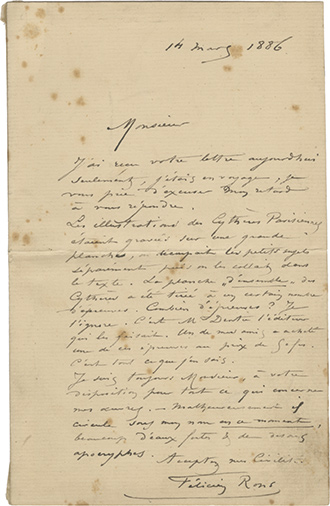 14 mars 1886
Monsieur
J'ai reçu votre lettre aujourdhui
seulement, j'étais en voyage, je
vous prie d'excuser mon retard
à vous répondre.
Les illustrations des Cythères Parisiennes
étaient gravées sur une grande
planche, on découpait les petits sujets
séparément puis on les collait dans
le texte. La planche d'ensemble des
Cythères a été tirée à un certain nombre
d'épreuves. Combien d'épreuves? Je
l'ignore. C'est M Dentu l'éditeur
qui les faisait. Un de mes amis a acheté
une de ces épreuves au prix de
C'est tout ce que je sais.
Je suis toujours Monsieur, à votre
disposition pour tout ce qui concerne
mes œuvres. – Malheureusement il
circule sous mon nom en ce moment,
beaucoup d'eaux fortes & de dessins
apocryphes. Acceptez mes Civilités.
Félicien Rops